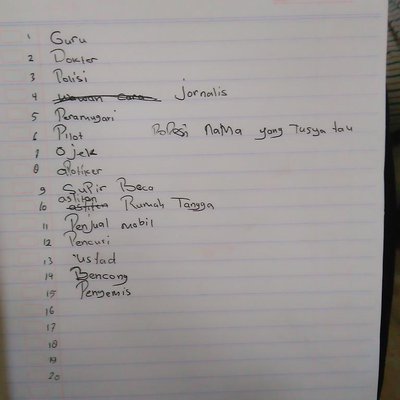 1 Guru
2 Dokter
3 Polisi
4 Wawan Cara Jornalis
5 Peramugari
6 Pilot Popesi NaMa yang Tusya tau
7 Ojek
8 apoliker
9 Supir Beca
10 asliten asliten Rumah Tangga
11 Penjual mobil
12 Pencuri
13 ustad
14 Bencong
15 Pengemis
16
17
18
19
20